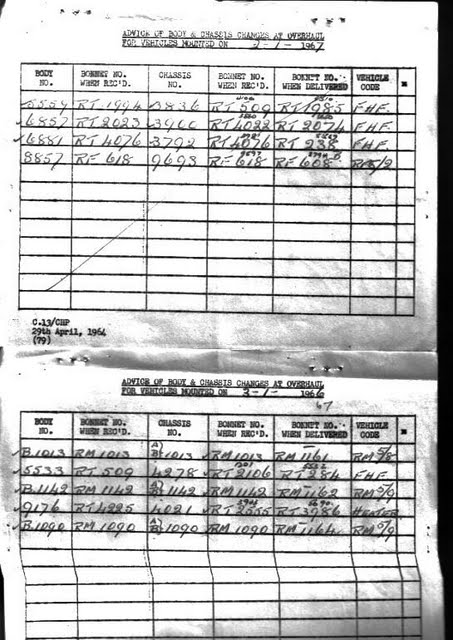 ADVICE OF BODY & CHASSIS CHANGES AT OVERHAUL
FOR VEHICLES MOUNTED ON 2-1- 1967
BODY NO. BONNET NO. WHEN REC'D. CHASSIS NO. BONNET NO. WHEN REC'D. BONNET NO. WHEN DELIVERED VEHICLE CODE
5559 RT 1994 3836 RT 509 RT 1985 FHF
6857 RT 2023 3900 RT 4022 RT 2074 FHF
6881 RT 4076 3792 RT 4076 RT 238 FHF
8857 RF 618 9693 RF 618 RF 608 5/2
C.13/CHP
29th April, 1964
(79)
ADVICE OF BODY & CHASSIS CHANGES AT OVERHAUL
FOR VEHICLES MOUNTED ON 3-1- 1966
67
BODY NO. BONNET NO. WHEN REC'D. CHASSIS NO. BONNET NO. WHEN REC'D. BONNET NO. WHEN DELIVERED VEHICLE CODE
B1013 RM 1013 B1013 RM 1013 RM 1161 RM 5/8
5533 RT 509 4278 RT 2106 RT 284 FHF
B1142 RM 1142 B1142 RM 1142 RM 1162 RM 5/9
9176 RT 4225 4021 RT 2555 RT 3986 HEATER
B1090 RM 1090 B1090 RM 1090 RM 1164 RM 5/9